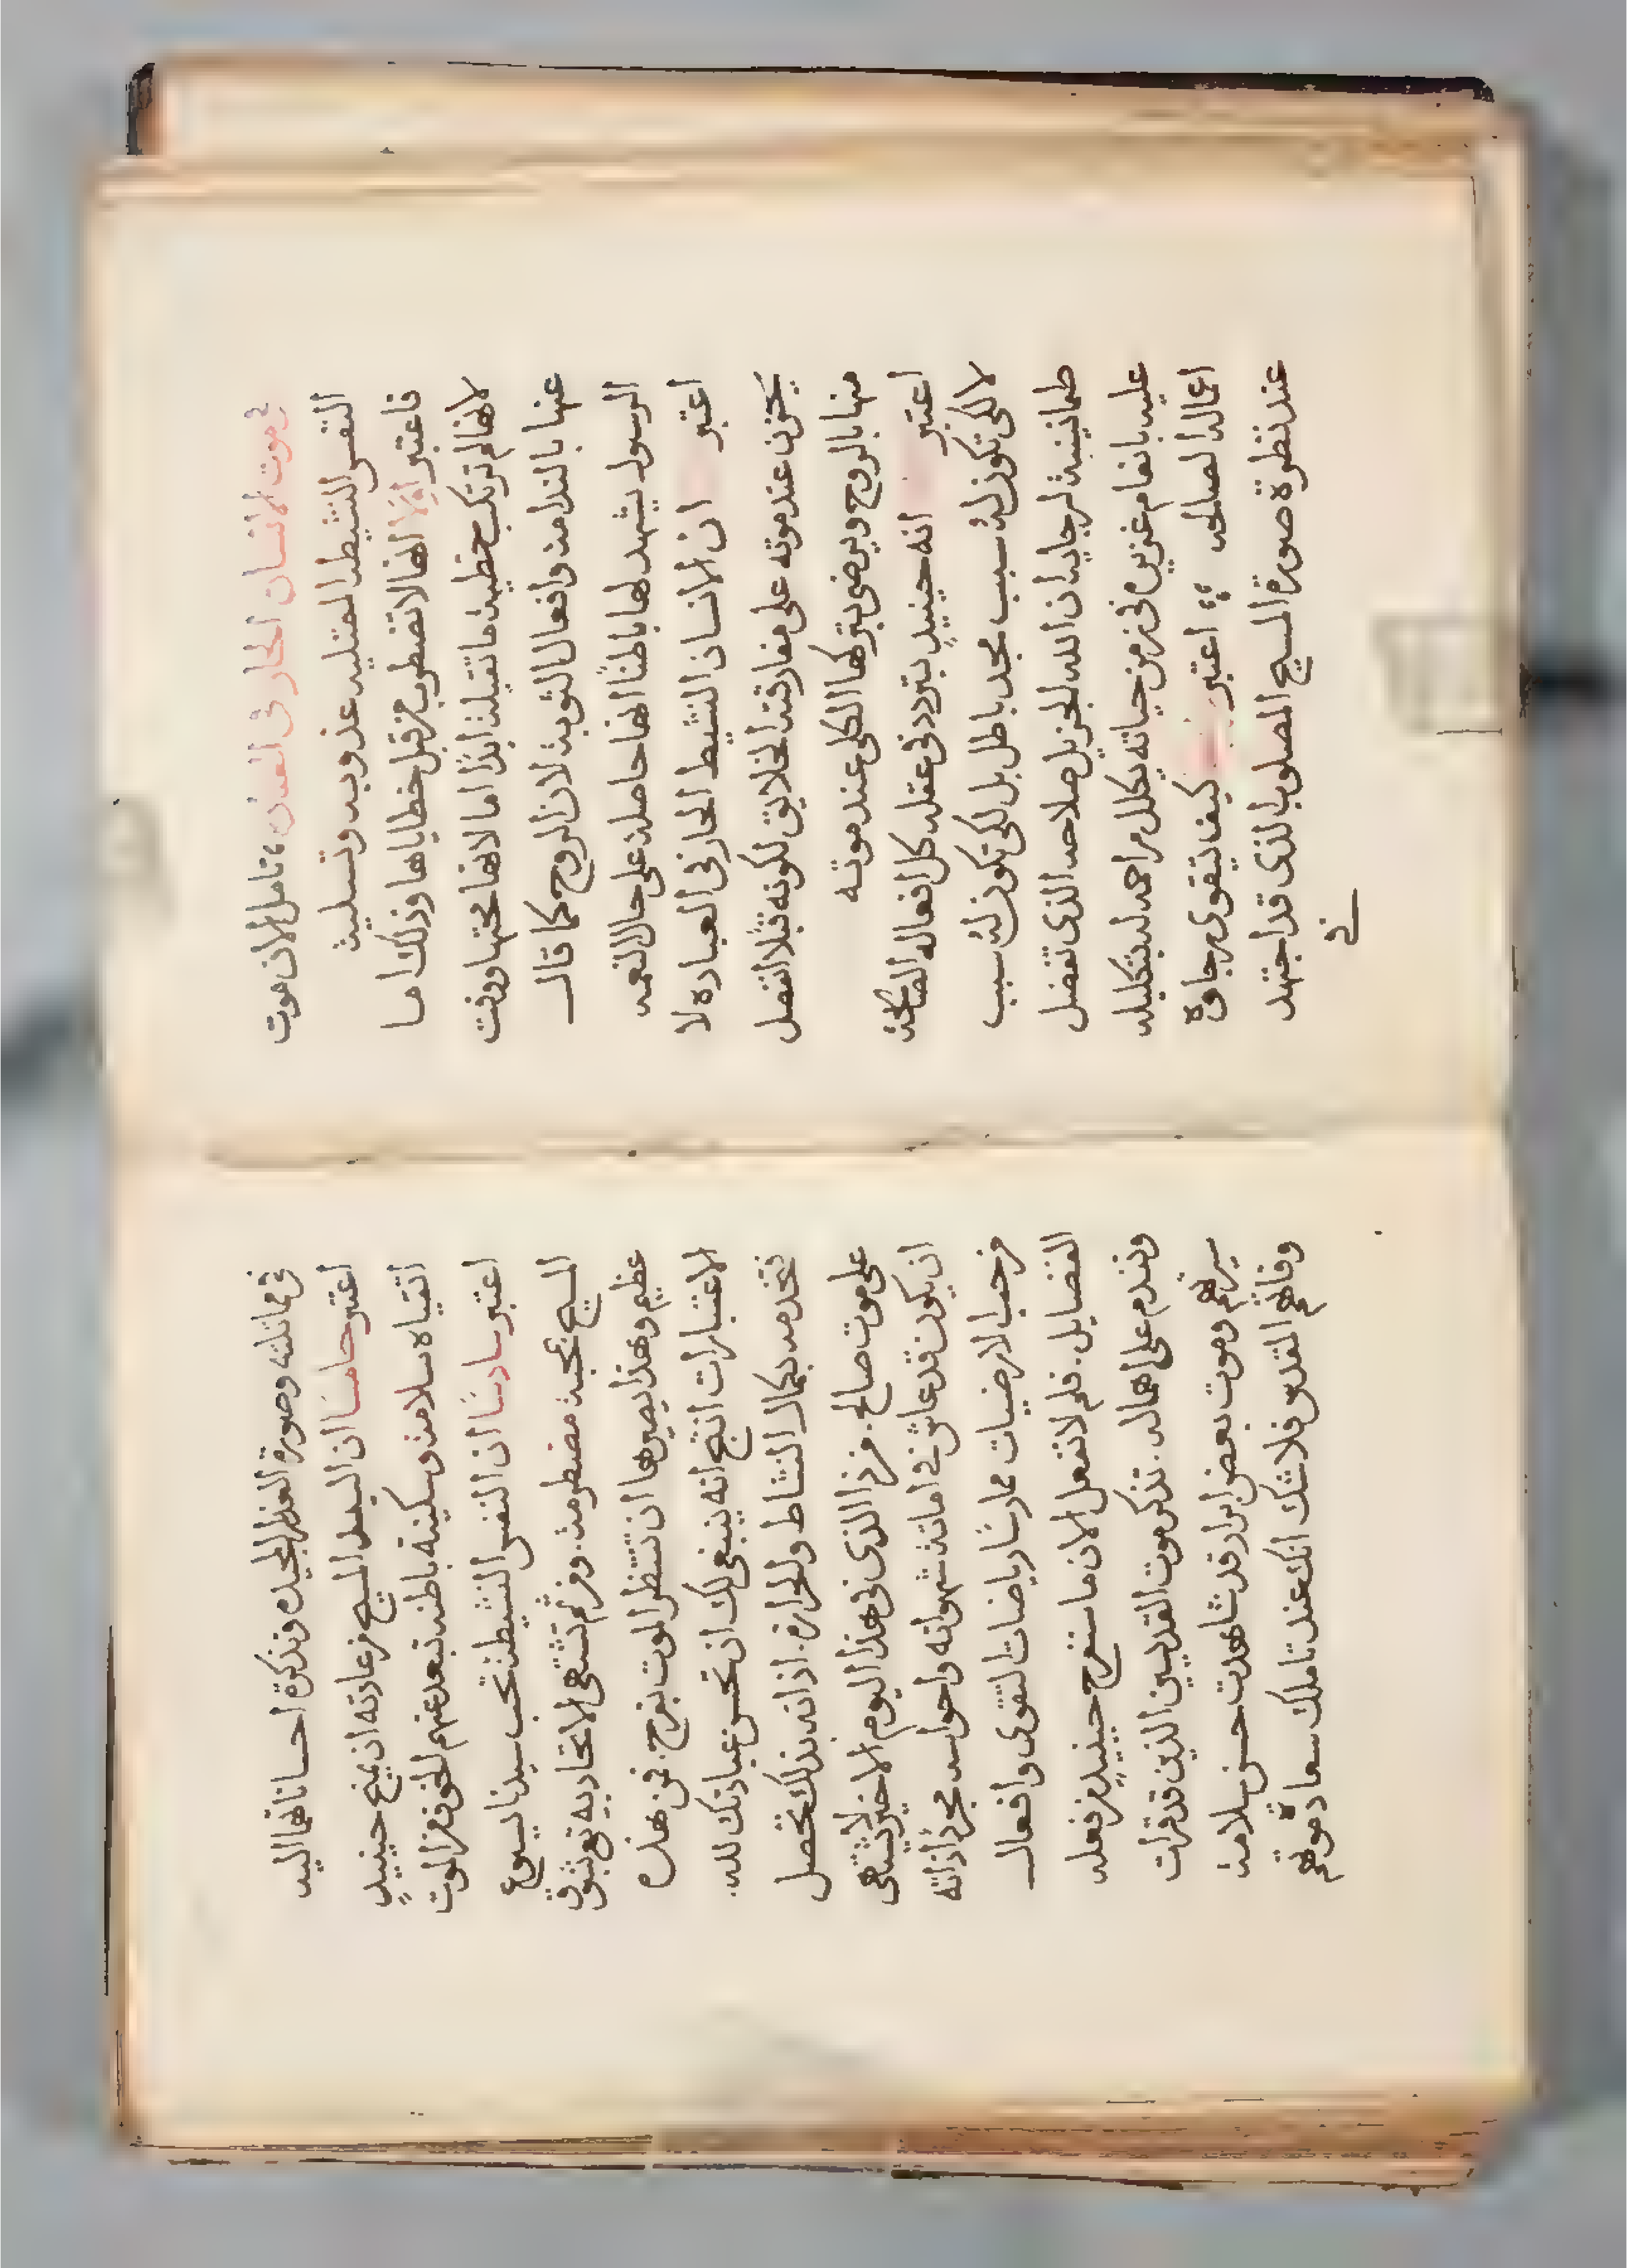 في موت الانسان الحار في العباده تامل الان موت
النفس النشيطه المقتليه عذوبه وتسلية
فاعتبر اولا انها لا تضطرب من قبل خطاياها وذلك اما
لانها لم ترتكب خطية ما ثقيلة ابدًا اما لانها محتها ووفت
عنها بالندامة وافعال التوبة لان الروح كما قال
الرسول يشهد لها باطنًا انها حاصلة على حال النعمه
اعتبر ان الانسان النشيط الحار في العباده لا
يحزن عند موته على مفارقته الخلايق لكونه قبلا انفصل
منها بالروح ويرضى بتركها الكلي عند موته
اعتبر انه حينيذٍ يتردد في عقله كل افعاله الصالحة
لا لكي تكون لهُ سبب مجد باطل بل لكي تكون لهُ سبب
طمانينية لرجايه ان الله الجزيل صلاحه الذي تفضل
عليه بانعام غزيره في زمن حياته يكلل مراحمه له بتكليله
اعماله الصالحه ؛؛ اعتبر كيف يتقوى رجاوهُ
عند نظرة صورة المسيح المصلوب الذي قد اجتهد
في
في مماثلته وصورة العذرا المجيده وتذكرة احساناتها اليه
اعتبر خامسًا ان السيد المسيح من عادته ان يمنح حينيذٍ
اتقياه سلامة وسكينة باطنه تبعد عنهم الخوف من الموت
اعتبر سادسًا ان النفس النشيطة تحب سيدنا يسوع
المسيح محبة مضطرمة. ومن ثم تشتهي الاتحاد به بتشوق
عظيم وهذا يصيرها ان تنتظر الموت بفرح. فمن هذه
الاعتبارات انتج انه ينبغي لك ان تحسن عبادتك لله.
فتخدمه بكمال النشاط والحراره. اذ انه بذلك تحصل
على موت صالح. فمن ذا الذي في هذا اليوم الاخير لا يشتهي
ان يكون قد عاش في اماتة شهواته واحواسه مجردًا ذاته
من حب الارضيات ممارسًا رياضات التقوى وافعال
الفضايل. فلم لا تفعل الان ما ستفرح حينيذٍ من فعله
وتندم على اهماله. تذكر موت القديسين الذين قد قرات
سيرتهم وموت بعض ابرار قد شاهدت حسن سلامة
وفاتهم المقدس فلا شك انك عند تاملك سعادة موتهم